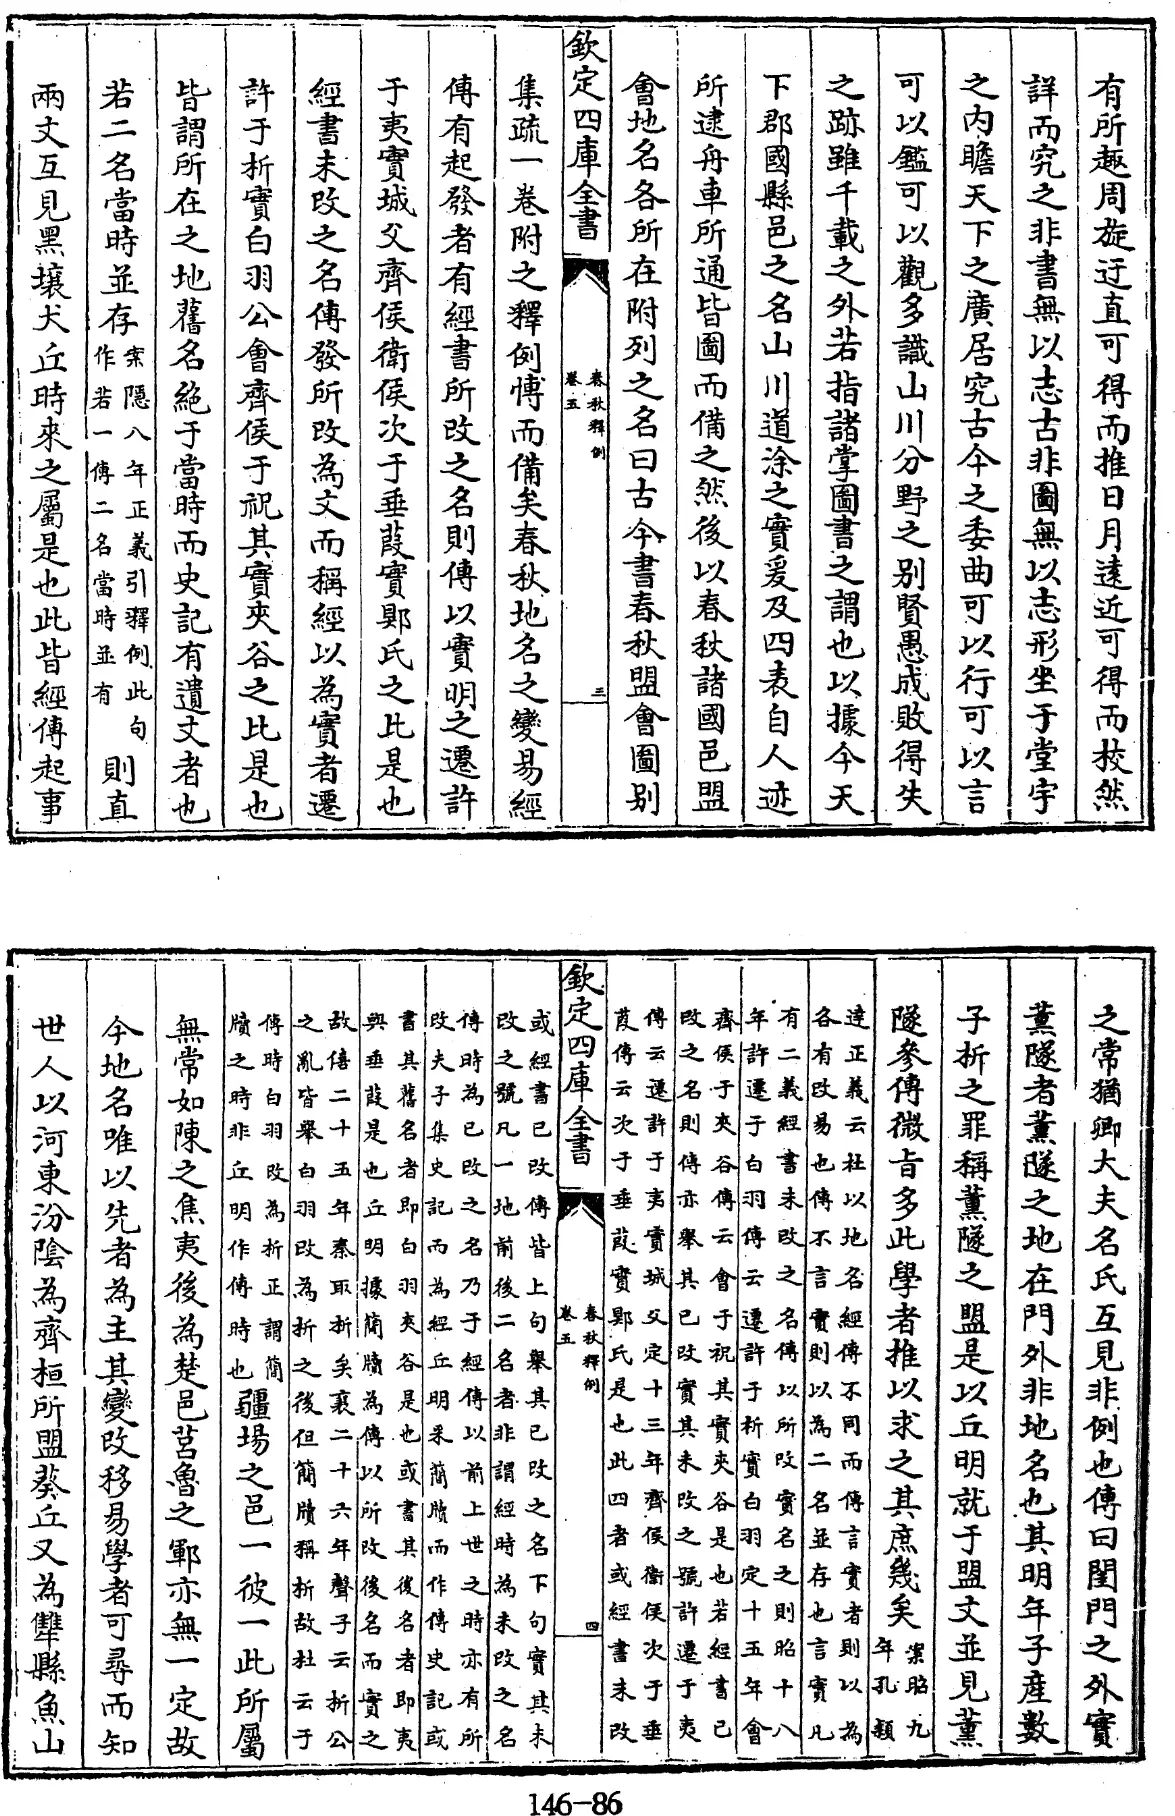 有所趣周旋迂直可得而推日月遠近可得而校然
詳而究之非書無以志古非圖無以志形坐于堂宇
之内瞻天下之廣居究古今之委曲可以行可以言
可以鑑可以觀多識山川分野之别賢愚成敗得失
之跡雖千載之外若指諸掌圖書之謂也以據今天
下郡國縣邑之名山川道涂之實爰及四表自人迹
所逮舟車所通皆圖而備之然後以春秋諸國邑盟
會地名各所在附列之名曰古今書春秋盟會圖别
欽定四庫全書
春秋釋例
卷五
三
集疏一卷附之釋例愽而備矣春秋地名之變易經
傳有起發者有經書所改之名則傳以實明之遷許
于夷實城父齊侯衛侯次于垂葭實郹氏之比是也
經書未改之名傳發所改為文而稱經以為實者遷
許于析實白羽公會齊侯于祝其實夾谷之比是也
皆謂所在之地舊名絶于當時而史記有遺文者也
若二名當時並存
案隱八年正義引釋例此句
作若一傳二名當時並有
則直
兩文互見黑壤犬丘時來之屬是也此皆經傳起事
之常猶卿大夫名氏互見非例也傳曰閨門之外實
薰隧者薰隧之地在門外非地名也其明年子產數
子析之罪稱薰隧之盟是以丘明就于盟文並見薰
隧參傳微旨多此學者推以求之其庶幾矣
案昭九
年孔穎
達正義云杜以地名經傳不同而傳言實者則以為
各有改易也傳不言實則以為二名並存也言實凡
有二義經書未改之名傳以所改實名之則昭十八
年許遷于白羽傳云遷許于析實白羽定十五年會
齊侯于夾谷傳云會于祝其實夾谷是也若經書已
改之名則傳亦舉其已改實其未改之號許遷于夷
傳云遷許于夷實城父定十三年齊侯衛侯次于垂
葭傳云次于垂葭實郹氏是也此四者或經書未改
欽定四庫全書
春秋釋例
卷五
四
或經書已改傳皆上句舉其已改之名下句實其未
改之號凡一地前後二名者非謂經時為未改之名
傳時為已改之名乃于經傳以前上世之時亦有所
改夫子集史記而為經丘明采簡牘而作傳史記或
書其舊名者即白羽夾谷是也或書其後名者即夷
與垂葭是也丘明據簡牘為傳以所改後名而實之
故僖二十五年秦取析矣襄二十六年聲子云析公
之亂皆舉白羽改為析之後但簡牘稱析故杜云于
傳時白羽改為析正謂簡
牘之時非丘明作傳時也
疆場之邑一彼一此所屬
無常如陳之焦夷後為楚邑莒魯之鄆亦無一定故
今地名唯以先者為主其變改移易學者可尋而知
世人以河東汾陰為齊桓所盟葵丘又為犨縣魚山
146-86